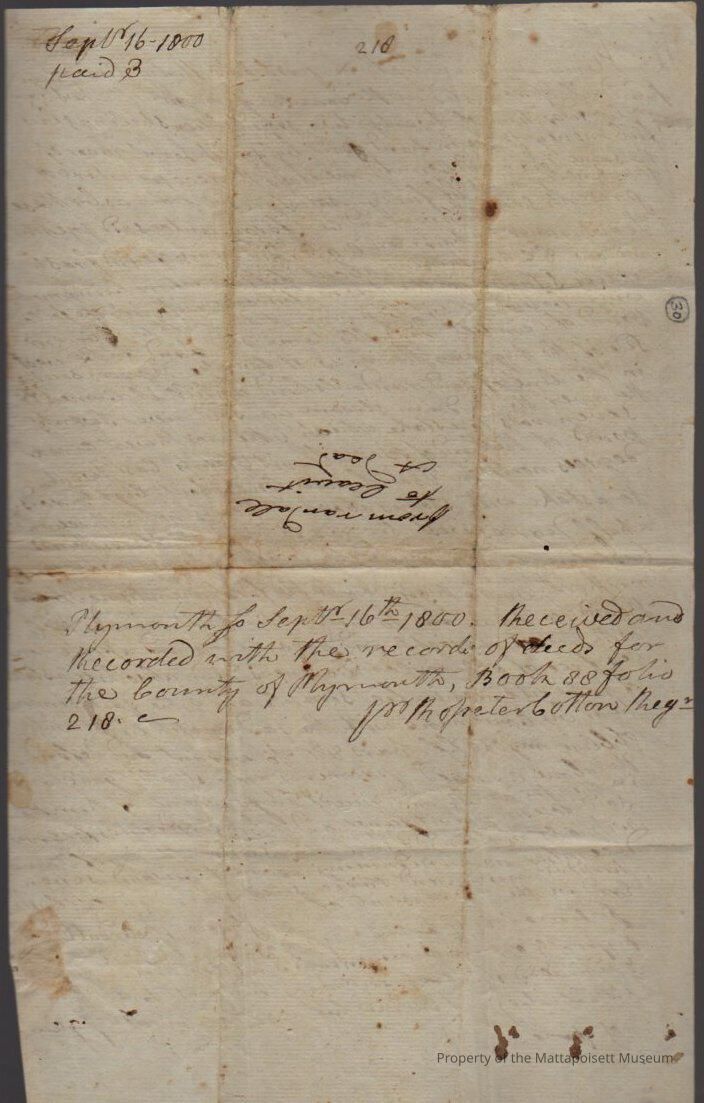 Septr 16 - 1800
paid 3
218
30
from randall
to Leavit
A Dead
Plymouth ss Septr 16th 1800. Received and
Recorded with the records of deeds for
the County of Plymouth, Book 88 folio
218.
pr Rossseter Cotton Regr
Property of the Mattapoisett Museum